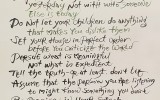 yesterday, not with who someone
Else is today
Do not let your children do anything
that makes you dislike them
Set your house in perfect order
before you criticize the world
Pursue what is meaningful
Not what is expedient
Tell the truth - or at least don't lie
Assume that the person you are listening
to might know something you don't